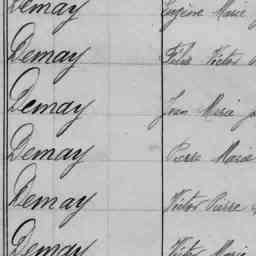 Demay Eugène Marie
Demay Félix Victor
Demay Jean Marie
Demay Pierre Marie
Demay Victor Pierre
Demay Victor Marie